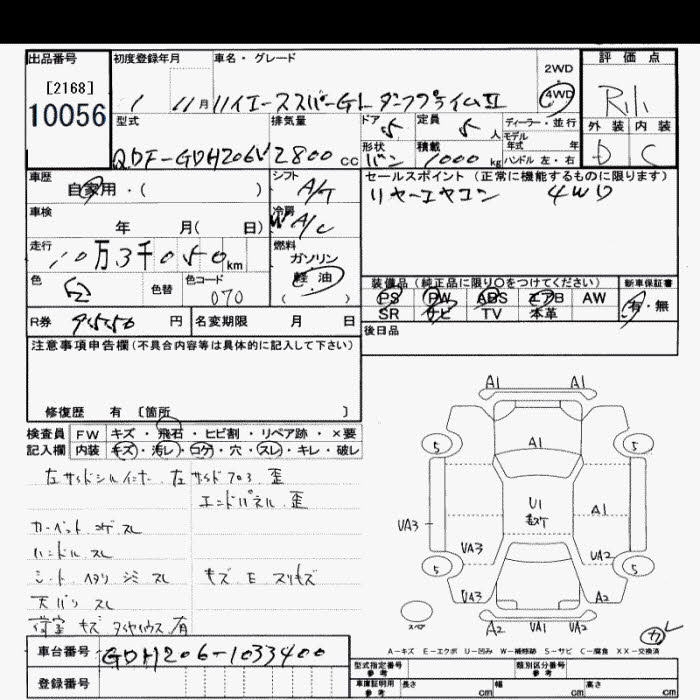 出品番号 初度登録年月 車名・グレード 2WD 評価点
[2168] 1 11月 ハイエーススパーGL ダークプライムⅡ 4WD R
10056 型式 排気量 ドア 5 定員 5 人 ディーラー・並行 外装 内装
モデル年式 年
QDF-GDH206V 2800 CC 形状 バン 積載 1000 kg ハンドル 左・右 D C
車歴 シフト セールスポイント (正常に機能するものに限ります)
自家用・( ) A/T リヤーエヤコン 4WD
車検 冷房
年 月( 日) W A/C
走行 燃料
10万3千050km ガソリン
色 色替 色コード 軽油 装備品(純正品に限り〇をつけてください) 新車保証書
白 070 ( ) PS PW ABS エアB AW 有・無
SR ナビ TV 本革
R券 9550 円 名変期限 月 日 後日品
注意事項申告欄(不具合内容等は具体的に記入して下さい)
修復歴 有 〔箇所 〕
検査員 FW キズ・飛石・ヒビ割・リペア跡・×要
記入欄 内装 キズ・汚レ・コゲ・穴・スレ・キレ・破レ
左サイドシルインナー 左サイドフロア 歪
エンドパネル 歪
カーペット コゲ スレ
ハンドル スレ
シート ヘタリ シミ スレ キズ E スリキズ
天バリ スレ
荷室 キズ タイヤハウス 有
A1 A1
5 A1 5
U1 A1
UA3
UA3 UA2
5 5
UA3 A2
スペア A2 UA1 UA2
A-キズ E-エクボ U-凹み W-補修跡 S-サビ C-腐食 XX-交換済
車台番号 GDH206-1033400
登録番号
型式指定番号 参考 類別区分番号 参考
車庫証明用 参考 長さ cm 幅 cm 高さ cm